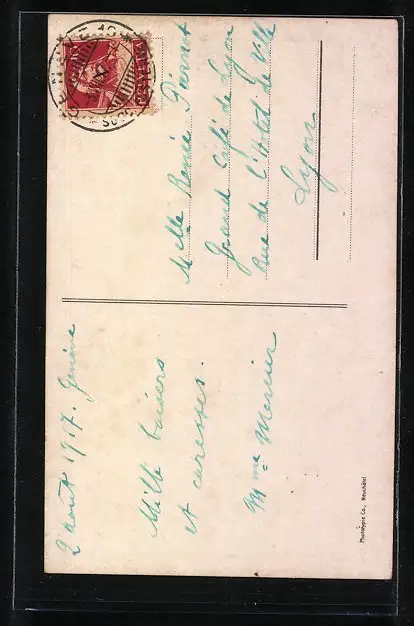 2 août 1917. Genève
Mille baisers
et caresses.
Mme Mercier
Mlle Renée
Grand Café de Lyon
Rue de l'Hôtel de Ville
Lyon
Phototypie Co., Neuchâtel